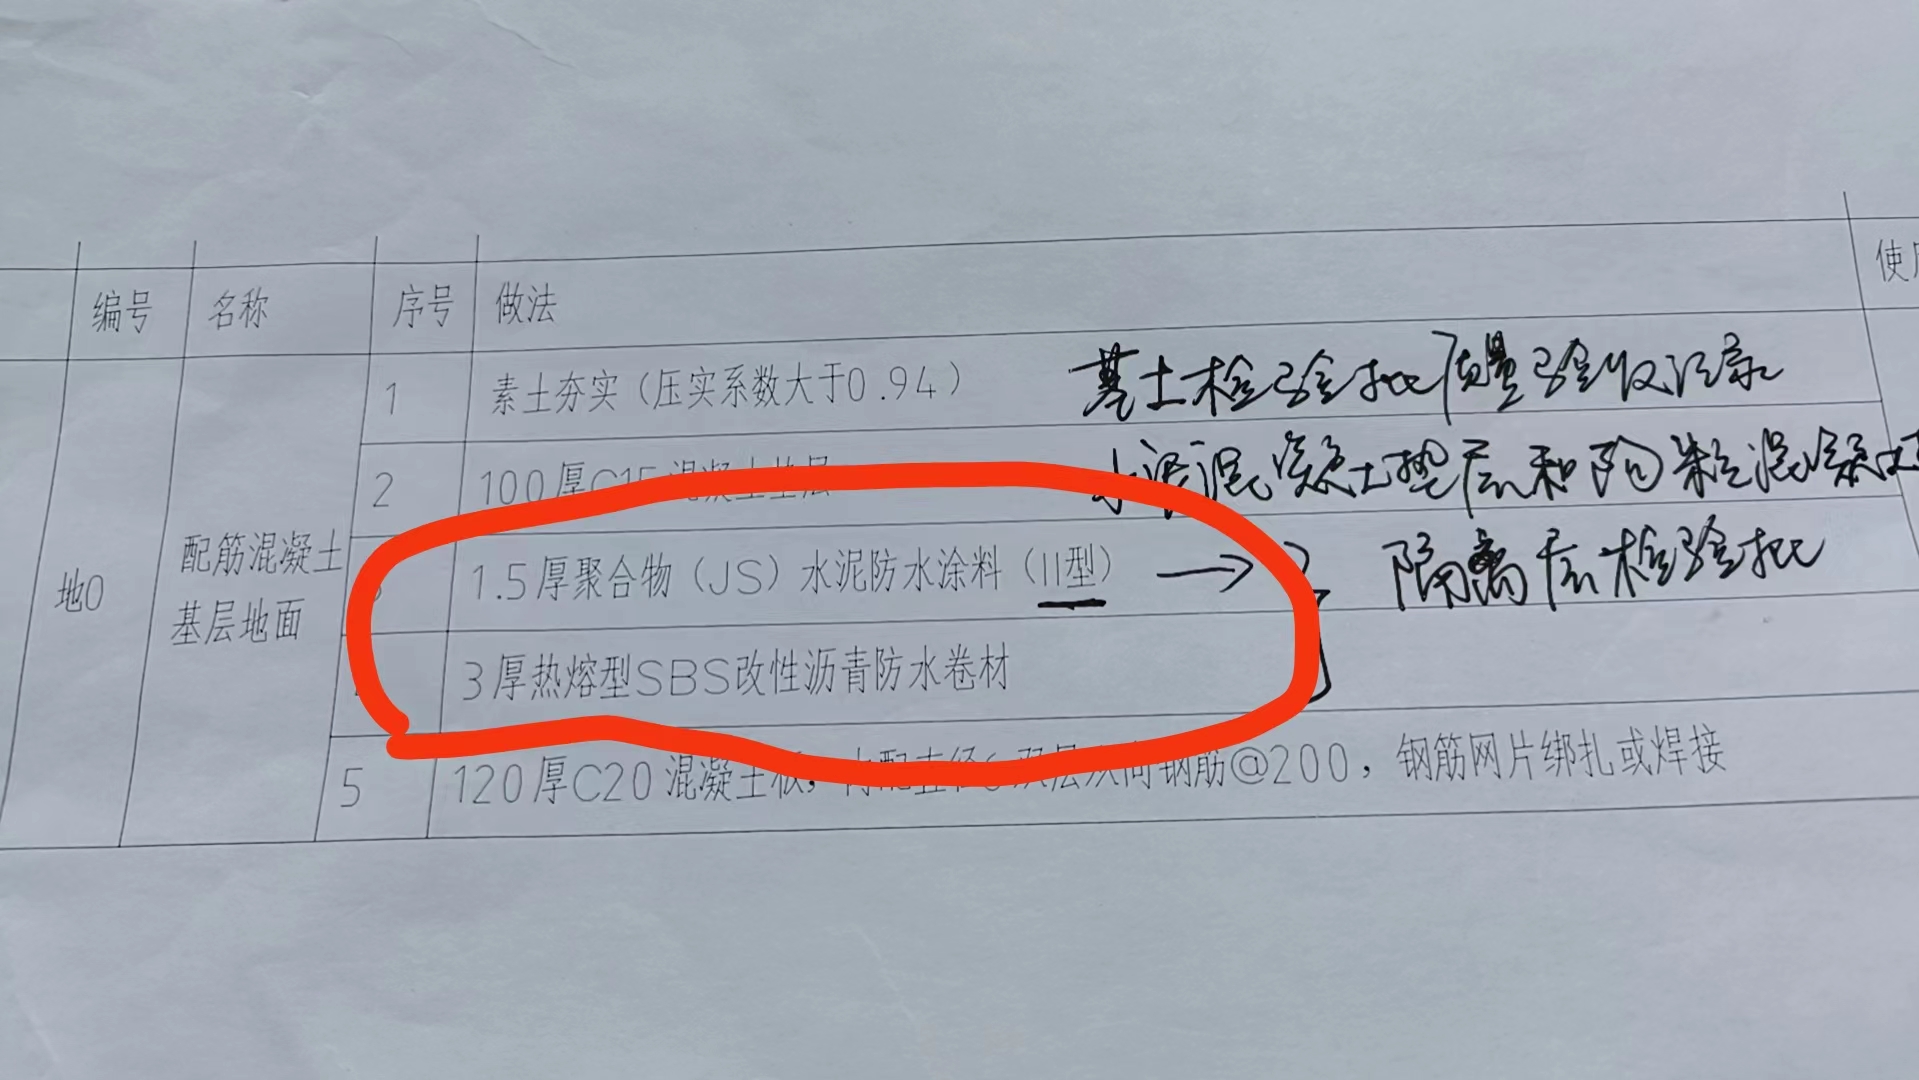 编号 名称 序号 做法 使
1 素土夯实（压实系数大于0.94） 基土检验批质量验收记录
2 100厚C15混凝土垫层 水泥混凝土垫层和陶粒混凝土
3 1.5厚聚合物（JS）水泥防水涂料（II型） 隔离层检验批
地0 配筋混凝土
基层地面
3厚热熔型SBS改性沥青防水卷材
5 120厚C20混凝土板，内配直径6双层双向钢筋@200，钢筋网片绑扎或焊接